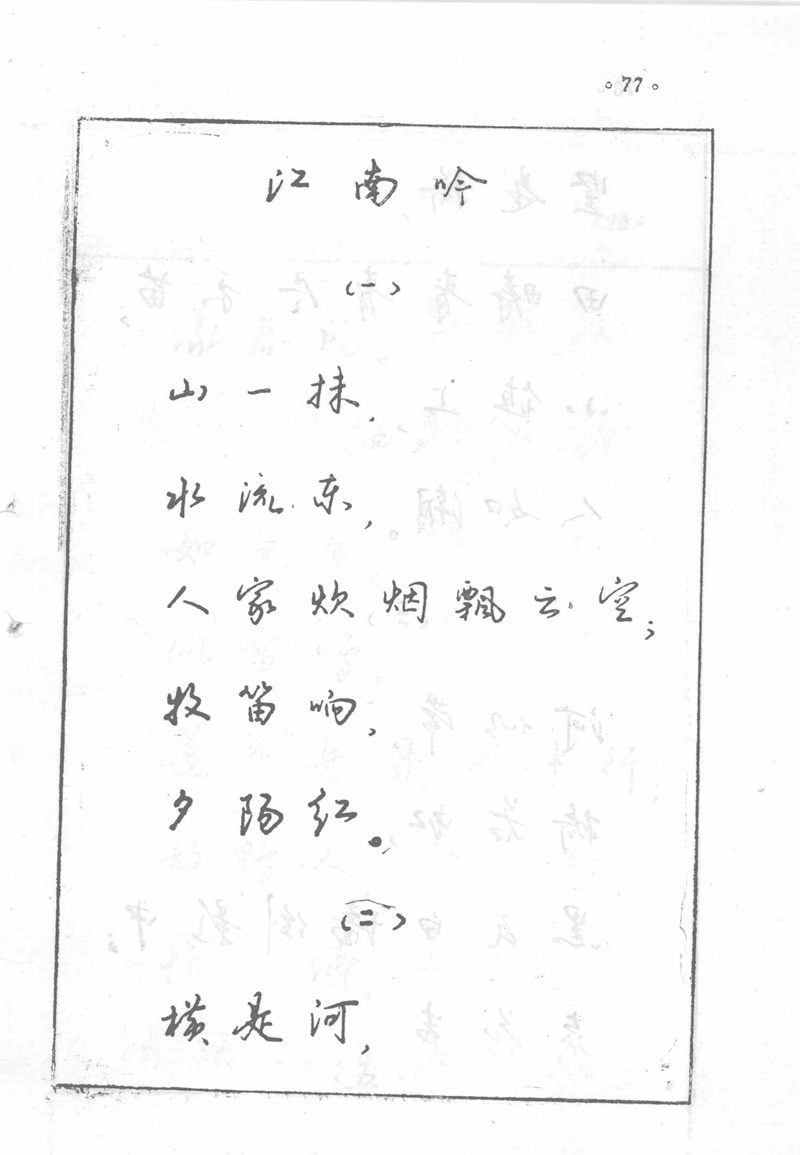 。77。
江南吟
(一)
山一抹,
水流东,
人家炊烟飘云空;
牧笛响,
夕阳红。
(二)
横是河,